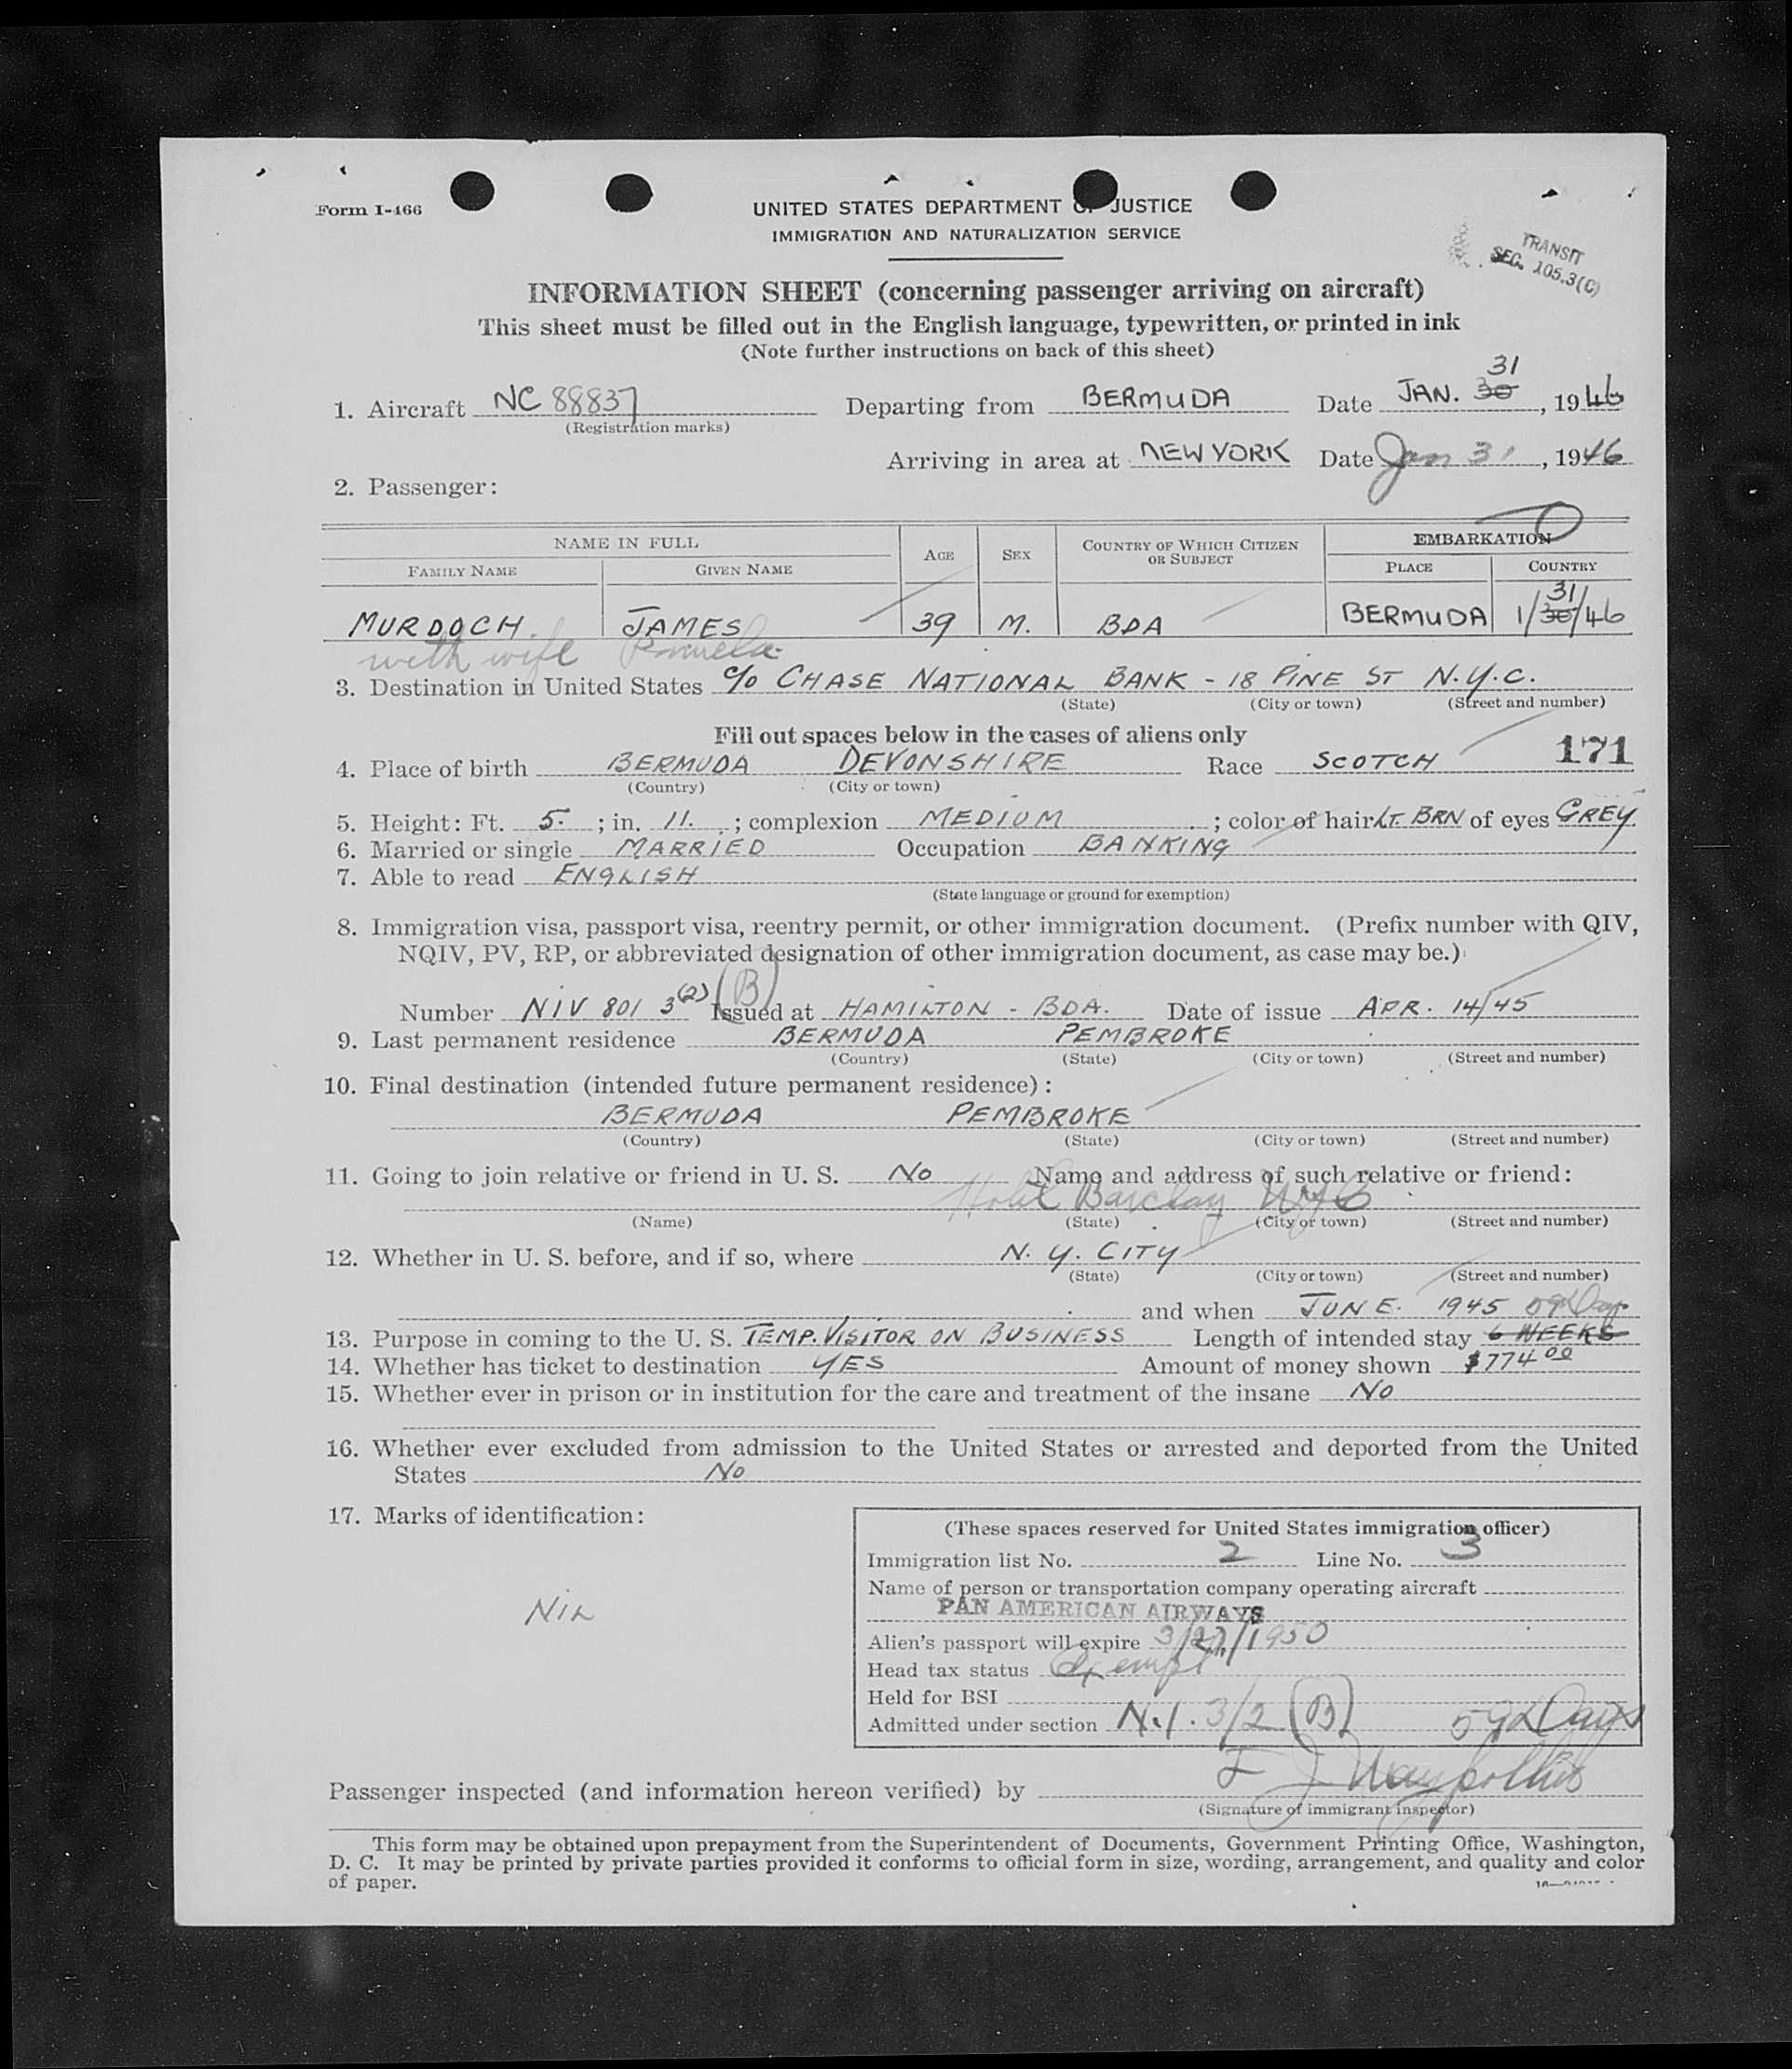 Form I-466
UNITED STATES DEPARTMENT OF JUSTICE
IMMIGRATION AND NATURALIZATION SERVICE
TRANSIT
SEC. 105.3(C)
INFORMATION SHEET (concerning passenger arriving on aircraft)
This sheet must be filled out in the English language, typewritten, or printed in ink
(Note further instructions on back of this sheet)
31
1. Aircraft NC 88837 Departing from BERMUDA Date JAN. 30, 1946
(Registration marks)
Arriving in area at NEW YORK Date Jan 31, 1946
2. Passenger:
NAME IN FULL AGE SEX COUNTRY OF WHICH CITIZEN OR SUBJECT EMBARKATION
FAMILY NAME GIVEN NAME PLACE COUNTRY
31
MURDOCH JAMES 39 M. BDA BERMUDA 1/30/46
with wife
3. Destination in United States c/o CHASE NATIONAL BANK - 18 PINE ST N.Y.C.
(State) (City or town) (Street and number)
Fill out spaces below in the cases of aliens only
171
4. Place of birth BERMUDA DEVONSHIRE Race SCOTCH
(Country) (City or town)
5. Height: Ft. 5 ; in. 11. ; complexion MEDIUM ; color of hair LT. BRN of eyes GREY
6. Married or single MARRIED Occupation BANKING
7. Able to read ENGLISH
(State language or ground for exemption)
8. Immigration visa, passport visa, reentry permit, or other immigration document. (Prefix number with QIV,
NQIV, PV, RP, or abbreviated designation of other immigration document, as case may be.)
Number NIV 801 3(2) (B) Issued at HAMILTON - BDA. Date of issue APR. 14/45
9. Last permanent residence BERMUDA PEMBROKE
(Country) (State) (City or town) (Street and number)
10. Final destination (intended future permanent residence):
BERMUDA PEMBROKE
(Country) (State) (City or town) (Street and number)
11. Going to join relative or friend in U. S. No Name and address of such relative or friend:
Hotel Barclay NYC
(Name) (State) (City or town) (Street and number)
12. Whether in U. S. before, and if so, where N. Y. CITY
(State) (City or town) (Street and number)
and when JUNE. 1945 59 Days
13. Purpose in coming to the U. S. TEMP. VISITOR ON BUSINESS Length of intended stay 6 WEEKS
14. Whether has ticket to destination YES Amount of money shown $774 00
15. Whether ever in prison or in institution for the care and treatment of the insane No
16. Whether ever excluded from admission to the United States or arrested and deported from the United
States No
17. Marks of identification:
NIL
(These spaces reserved for United States immigration officer)
Immigration list No. 2 Line No. 3
Name of person or transportation company operating aircraft
PAN AMERICAN AIRWAYS
Alien's passport will expire 3/27/1950
Head tax status Exempt
Held for BSI
Admitted under section N.I. 3/2 (B) 59 Days
Passenger inspected (and information hereon verified) by
(Signature of immigrant inspector)
This form may be obtained upon prepayment from the Superintendent of Documents, Government Printing Office, Washington,
D. C. It may be printed by private parties provided it conforms to official form in size, wording, arrangement, and quality and color
of paper.